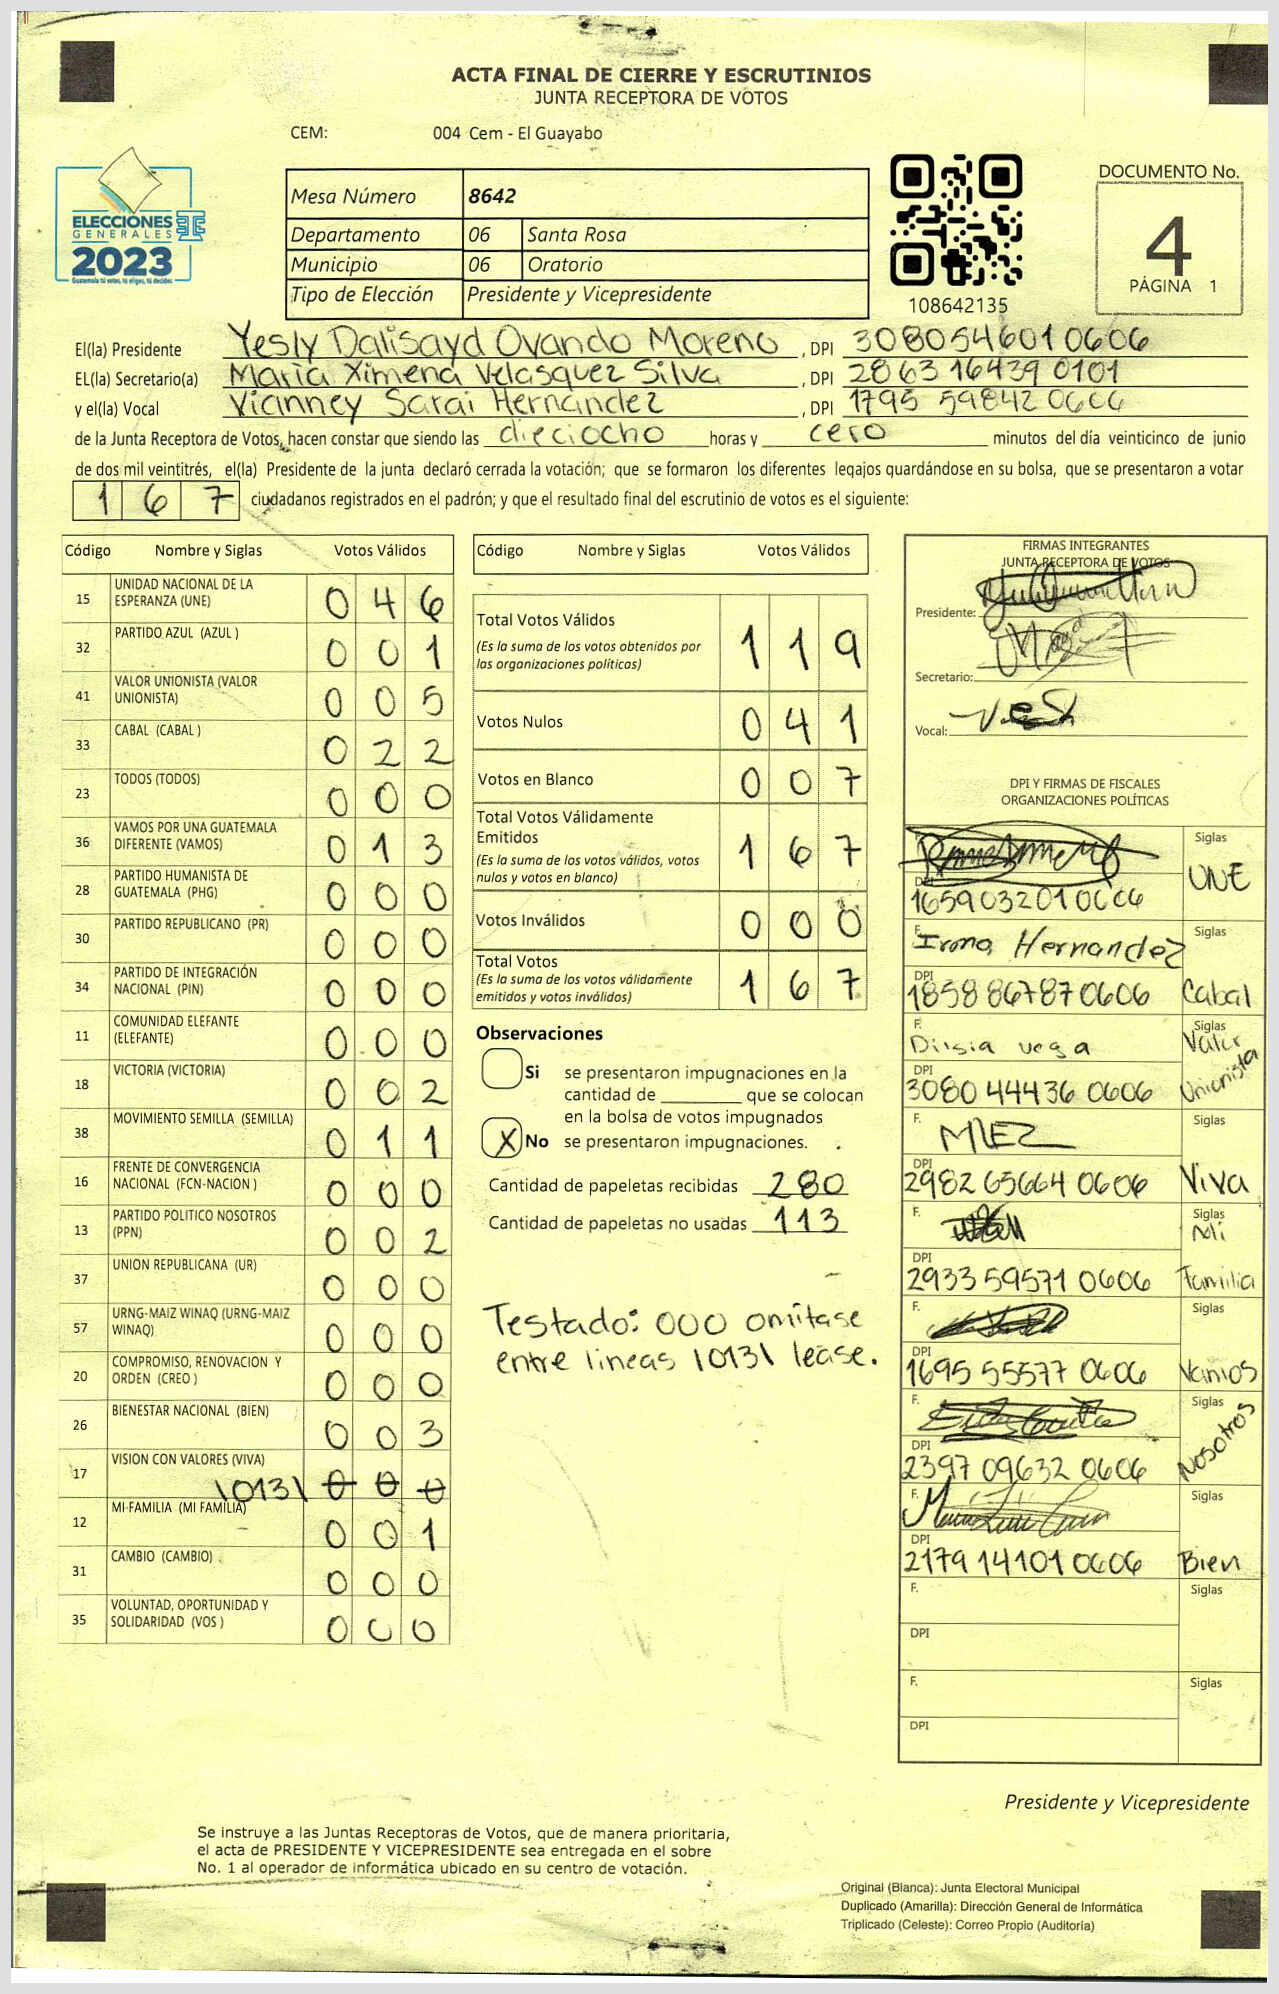 ACTA FINAL DE CIERRE Y ESCRUTINIOS
JUNTA RECEPTORA DE VOTOS
CEM: 004 Cem - El Guayabo
ELECCIONES
GENERALES
2023
Guatemala tú votas, tú eliges, tú decides
Mesa Número 8642
Departamento 06 Santa Rosa
Municipio 06 Oratorio
Tipo de Elección Presidente y Vicepresidente
108642135
DOCUMENTO No.
4
PÁGINA 1
El(la) Presidente Yesly Dalisayd Ovando Moreno , DPI 308054601 0606
EL(la) Secretario(a) Maria Ximena Velasquez Silva , DPI 286316439 0101
y el(la) Vocal Vianney Sarai Hernandez , DPI 1795 59842 0606
de la Junta Receptora de Votos, hacen constar que siendo las dieciocho horas y cero minutos del día veinticinco de junio
de dos mil veintitrés, el(la) Presidente de la junta declaró cerrada la votación; que se formaron los diferentes legajos guardándose en su bolsa, que se presentaron a votar
1 6 7 ciudadanos registrados en el padrón; y que el resultado final del escrutinio de votos es el siguiente:
Código Nombre y Siglas Votos Válidos
15 UNIDAD NACIONAL DE LA ESPERANZA (UNE) 0 4 6
32 PARTIDO AZUL (AZUL ) 0 0 1
41 VALOR UNIONISTA (VALOR UNIONISTA) 0 0 5
33 CABAL (CABAL ) 0 2 2
23 TODOS (TODOS) 0 0 0
36 VAMOS POR UNA GUATEMALA DIFERENTE (VAMOS) 0 1 3
28 PARTIDO HUMANISTA DE GUATEMALA (PHG) 0 0 0
30 PARTIDO REPUBLICANO (PR) 0 0 0
34 PARTIDO DE INTEGRACIÓN NACIONAL (PIN) 0 0 0
11 COMUNIDAD ELEFANTE (ELEFANTE) 0 0 0
18 VICTORIA (VICTORIA) 0 0 2
38 MOVIMIENTO SEMILLA (SEMILLA) 0 1 1
16 FRENTE DE CONVERGENCIA NACIONAL (FCN-NACION ) 0 0 0
13 PARTIDO POLITICO NOSOTROS (PPN) 0 0 2
37 UNION REPUBLICANA (UR) 0 0 0
57 URNG-MAIZ WINAQ (URNG-MAIZ WINAQ) 0 0 0
20 COMPROMISO, RENOVACION Y ORDEN (CREO ) 0 0 0
26 BIENESTAR NACIONAL (BIEN) 0 0 3
17 VISION CON VALORES (VIVA) \0131 0 0 0
12 MI FAMILIA (MI FAMILIA) 0 0 1
31 CAMBIO (CAMBIO) 0 0 0
35 VOLUNTAD, OPORTUNIDAD Y SOLIDARIDAD (VOS ) 0 0 0
Código Nombre y Siglas Votos Válidos
Total Votos Válidos 1 1 9
(Es la suma de los votos obtenidos por
las organizaciones políticas)
Votos Nulos 0 4 1
Votos en Blanco 0 0 7
Total Votos Válidamente
Emitidos 1 6 7
(Es la suma de los votos válidos, votos
nulos y votos en blanco)
Votos Inválidos 0 0 0
Total Votos 1 6 7
(Es la suma de los votos válidamente
emitidos y votos inválidos)
Observaciones
Si se presentaron impugnaciones en la
cantidad de ________ que se colocan
en la bolsa de votos impugnados
X No se presentaron impugnaciones.
Cantidad de papeletas recibidas 280
Cantidad de papeletas no usadas 113
Testado: 000 omítase
entre lineas \013\ lease.
FIRMAS INTEGRANTES
JUNTA RECEPTORA DE VOTOS
Presidente:
Secretario:
Vocal:
DPI Y FIRMAS DE FISCALES
ORGANIZACIONES POLÍTICAS
Siglas UNE
DPI 165903201 0606
F. Irma Hernandez Siglas Cabal
DPI 1858 86787 0606
F. Dilsia vega Siglas Valor Unionista
DPI 3080 44436 0606
F. Siglas Viva
DPI 2982 65664 0606
F. Siglas Mi Familia
DPI 2933 59571 0606
F. Siglas Vamos
DPI 1695 55577 0606
F. Siglas Nosotros
DPI 2397 09632 0606
F. Siglas Bien
DPI 2179 14101 0606
F. Siglas
DPI
F. Siglas
DPI
Presidente y Vicepresidente
Se instruye a las Juntas Receptoras de Votos, que de manera prioritaria,
el acta de PRESIDENTE Y VICEPRESIDENTE sea entregada en el sobre
No. 1 al operador de informática ubicado en su centro de votación.
Original (Blanca): Junta Electoral Municipal
Duplicado (Amarilla): Dirección General de Informática
Triplicado (Celeste): Correo Propio (Auditoría)